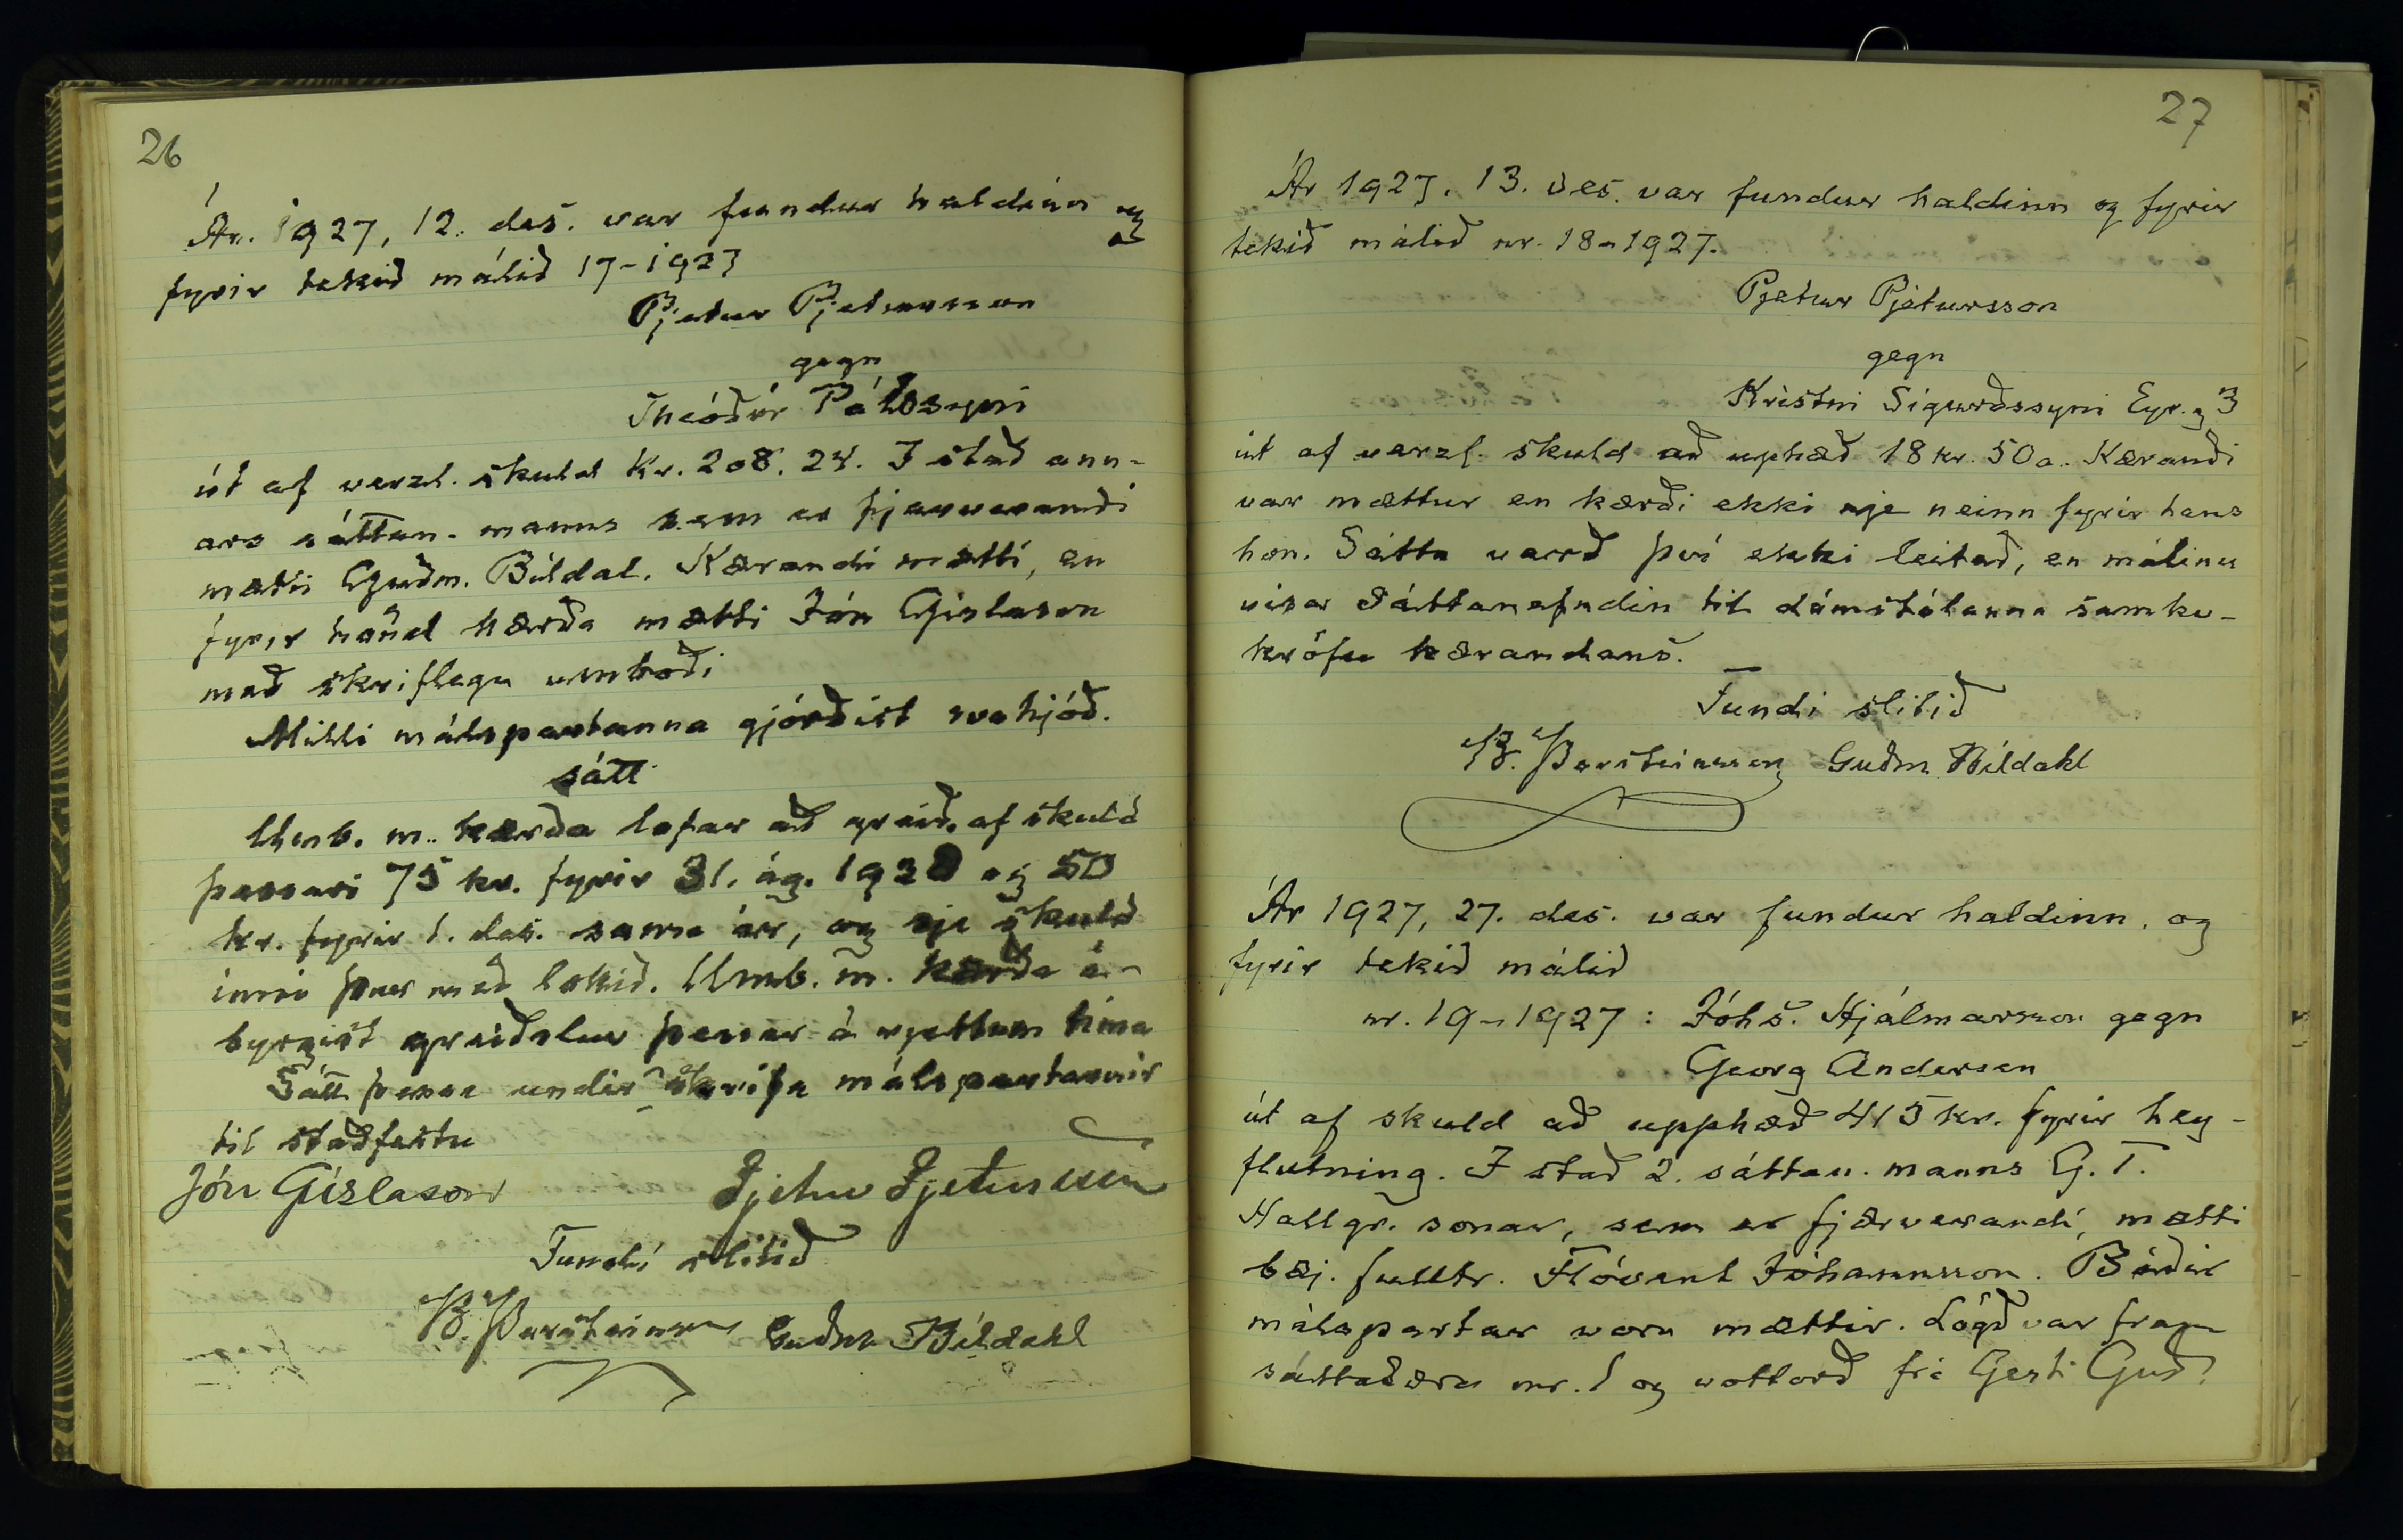 26
Ár. 1927, 12. des. var fundur haldinn og
fyrir tekið málið 17-1927
Pjetur Pjetursson
gegn
Theódór Pálssyni
út af verzl. skuld kr. 208.24. Í stað ann-
ars sáttan. manns sem er fjarverandi
mætir Guðm. Bíldal. Kærandi mætti, en
fyrir hönd kærða mætti Jón Gíslason
með skriflegu umboði
Milli málspartanna gjörðist svohjóð.
sátt
Umb. m. kærða lofar að greiða af skuld
þessari 75 kr. fyrir 31. ág. 1928 og 50
kr. fyrir 1. des. sama ár, og sje skuld
inni þar með lokið. Umb. m. kærða á-
byrgist greiðslur þessar á rjettum tíma
Sátt þessa undir skrifa málspartarnir
til staðfestu
Jón Gíslason Pjetur Pjetursson
Fundi slitið
B. Þorsteinsson Guðm Bíldahl
27
Ár 1927, 13. des. var fundur haldinn og fyrir
tekið málið nr. 18-1927.
Pjetur Pjetursson
gegn
Kristni Sigurðssyni Eyr.g 3
út af verzl. skuld að uphæð 18 kr. 50 a. Kærandi
var mættur en kærði ekki nje neinn fyrir hans
hön. Sátta varð því ekki leitað, en málinu
vísar Sáttanefndin til dómstólanna samkv-
kröfu kærandans.
Fundi slitið
B. Þorsteinsson Guðm Bíldahl
Ár 1927, 27. des. var fundur haldinn, og
fyrir tekið málið
nr. 19-1927: Jóhs. Hjálmarsson gegn
Georg Andersen
út af skuld að upphæð 415 kr. fyrir hey-
flutning. Í stað 2. sáttan. manns G. T.
Hallgr. sonar, sem er fjærverandi, mætti
bæj. fulltr. Flóvent Jóhannsson. Báðir
málspartar voru mættir. Lögð var fram
sáttakæra nr. 1 og vottorð frá Gesti Guð